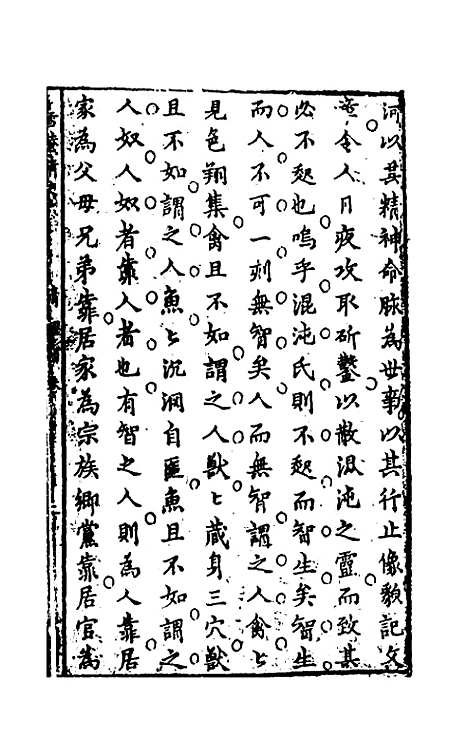 河以其精神命脉為世事以其行止像貌記文
令人日夜攻取斫鑿以散混沌之靈而致其
必不起也嗚乎混沌氏則不起而智生矣智生
而人不可一刻無智矣人而無智謂之人禽ヒ
見色翔集禽且不如謂之人獸ヒ蔵身三穴獸
且不如謂之人魚ヒ沉淵自匿魚且不如謂之
人奴人奴者靠人者也有智之人則為人靠居
家為父母兄弟靠居家為宗族鄉黨靠居官為